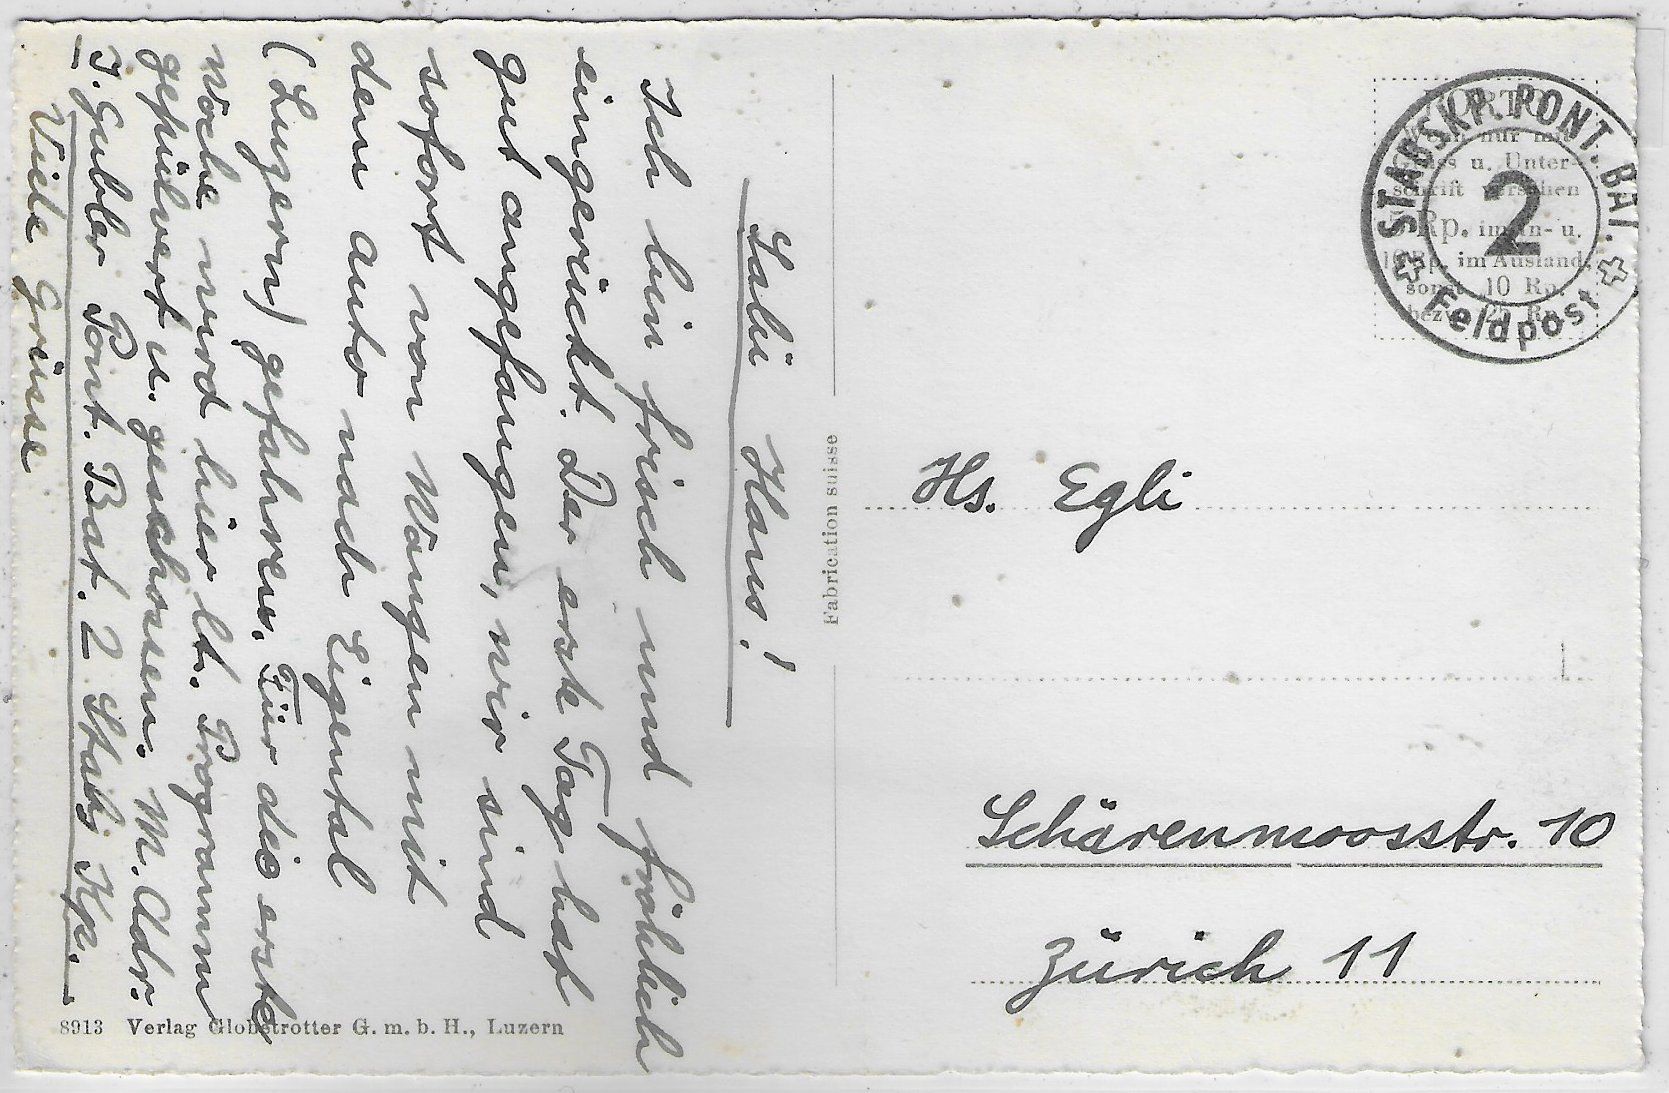 Salü Hans!
Ich bin frisch und fröhlich
eingerückt. Der erste Tag hat
gut angefangen, wir sind
sofort von Wangen mit
dem Auto nach Eigental
(Luzern) gefahren. Für die erste
Woche wird hier lt. Programm
gepülvert u. geschossen. M. Adr.
J. Gubler Pont. Bat. 2 Stabs Kp.
Viele Grüsse
8913 Verlag Globetrotter G. m. b. H., Luzern
Fabrication suisse
STABSKP. PONT. BAT.
2
Feldpost
PORTO
nur mit
Gruss u. Unter-
schrift versehen
Rp. im In- u.
10 Rp. im Ausland,
sonst 10 Rp.
bezw. 25 Rp.
Hs. Egli
Schärenmoosstr. 10
Zürich 11